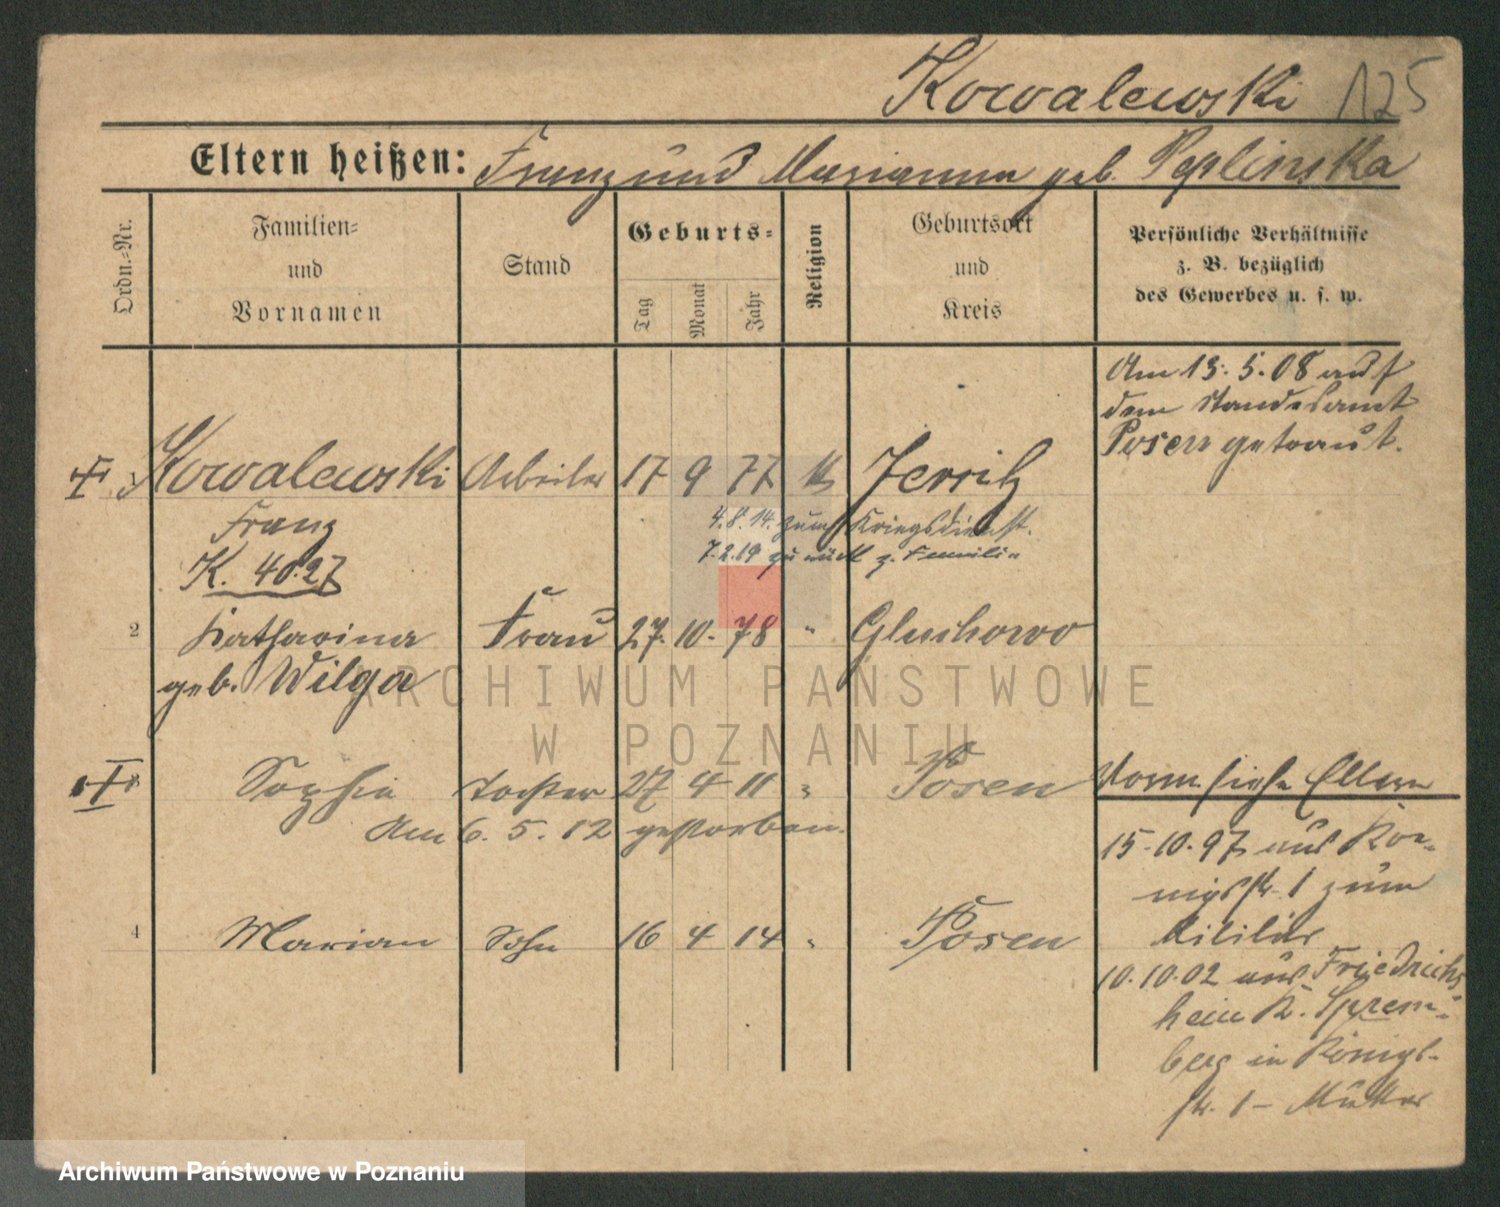 Kowalewski 125
Eltern heißen: Franz und Marianna geb. Peplinska
Ordn.-Nr.
Familien-
und
Vornamen
Stand
Geburts-
Tag
Monat
Jahr
Religion
Geburtsort
und
Kreis
Persönliche Verhältnisse
z. B. bezüglich
des Gewerbes u. s. w.
Am 13.5.08 auf
dem Standesamt
Posen getraut.
Kowalewski Arbeiter 17 9 77 k Jersitz
Franz
4.8.14. zum Kriegsdienst.
7.2.19 zurück z. Familie
K. 40.27
2 Katharina Frau 27. 10. 78 " Gluchowo
geb. Wilga
ARCHIWUM PAŃSTWOWE
W POZNANIU
Sophia Tochter 27 4 11 " Posen
Am 6.5.12 gestorben.
Vorm. siehe Eltern
15.10.97 aus Kö-
nigsstr. 1 zum
Militär
4 Marian Sohn 16 4 14 " Posen
10.10.02 aus Friedrichs
hein K. Sprem-
berg in Königs-
str. 1 - Mutter
Archiwum Państwowe w Poznaniu